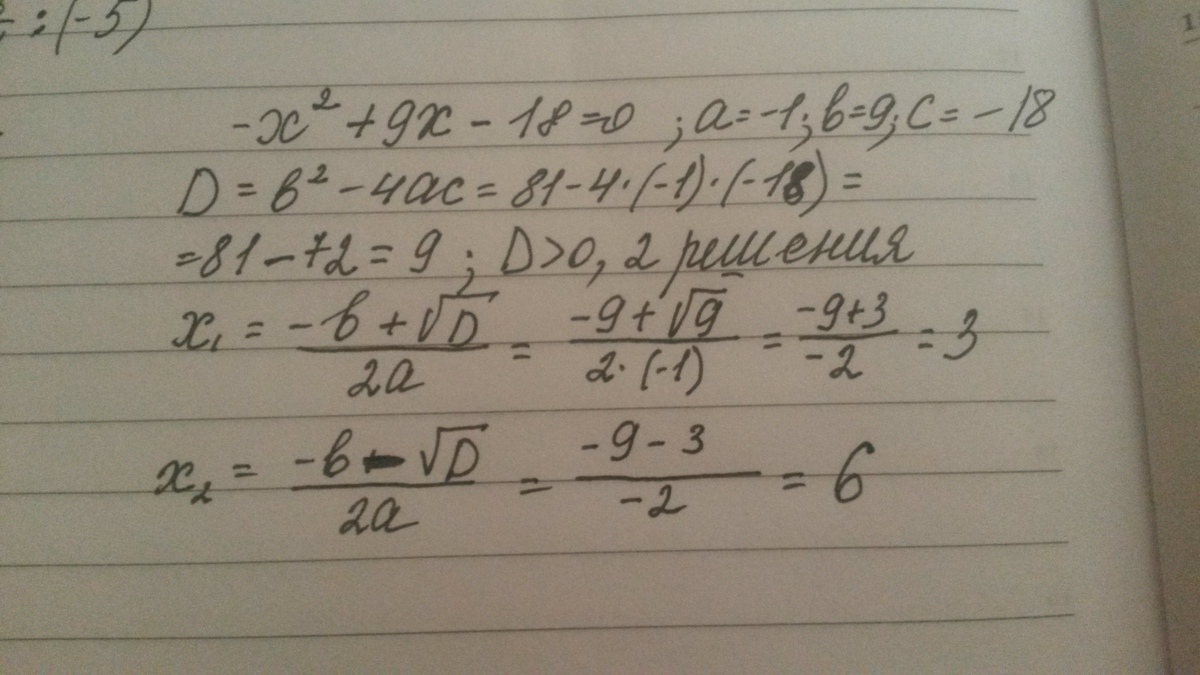 : (-5)
-x² + 9x - 18 = 0 ; a = -1; b = 9; c = -18
D = b² - 4ac = 81 - 4·(-1)·(-18) =
= 81 - 72 = 9 ; D > 0, 2 решения
x₁ = (-b + √D)/(2a) = (-9 + √9)/(2·(-1)) = (-9+3)/(-2) = 3
x₂ = (-b - √D)/(2a) = (-9 - 3)/(-2) = 6